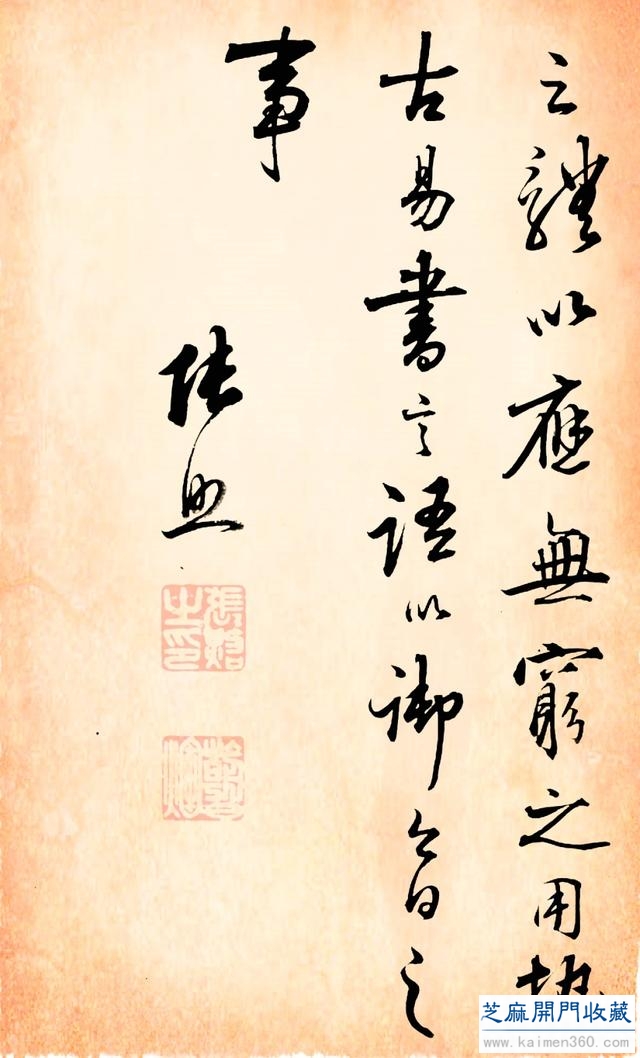 之體以應無窮之用執
古易書之語以御今日之
事
張照
張照之印
芝麻開門收藏
www.kaimen360.com